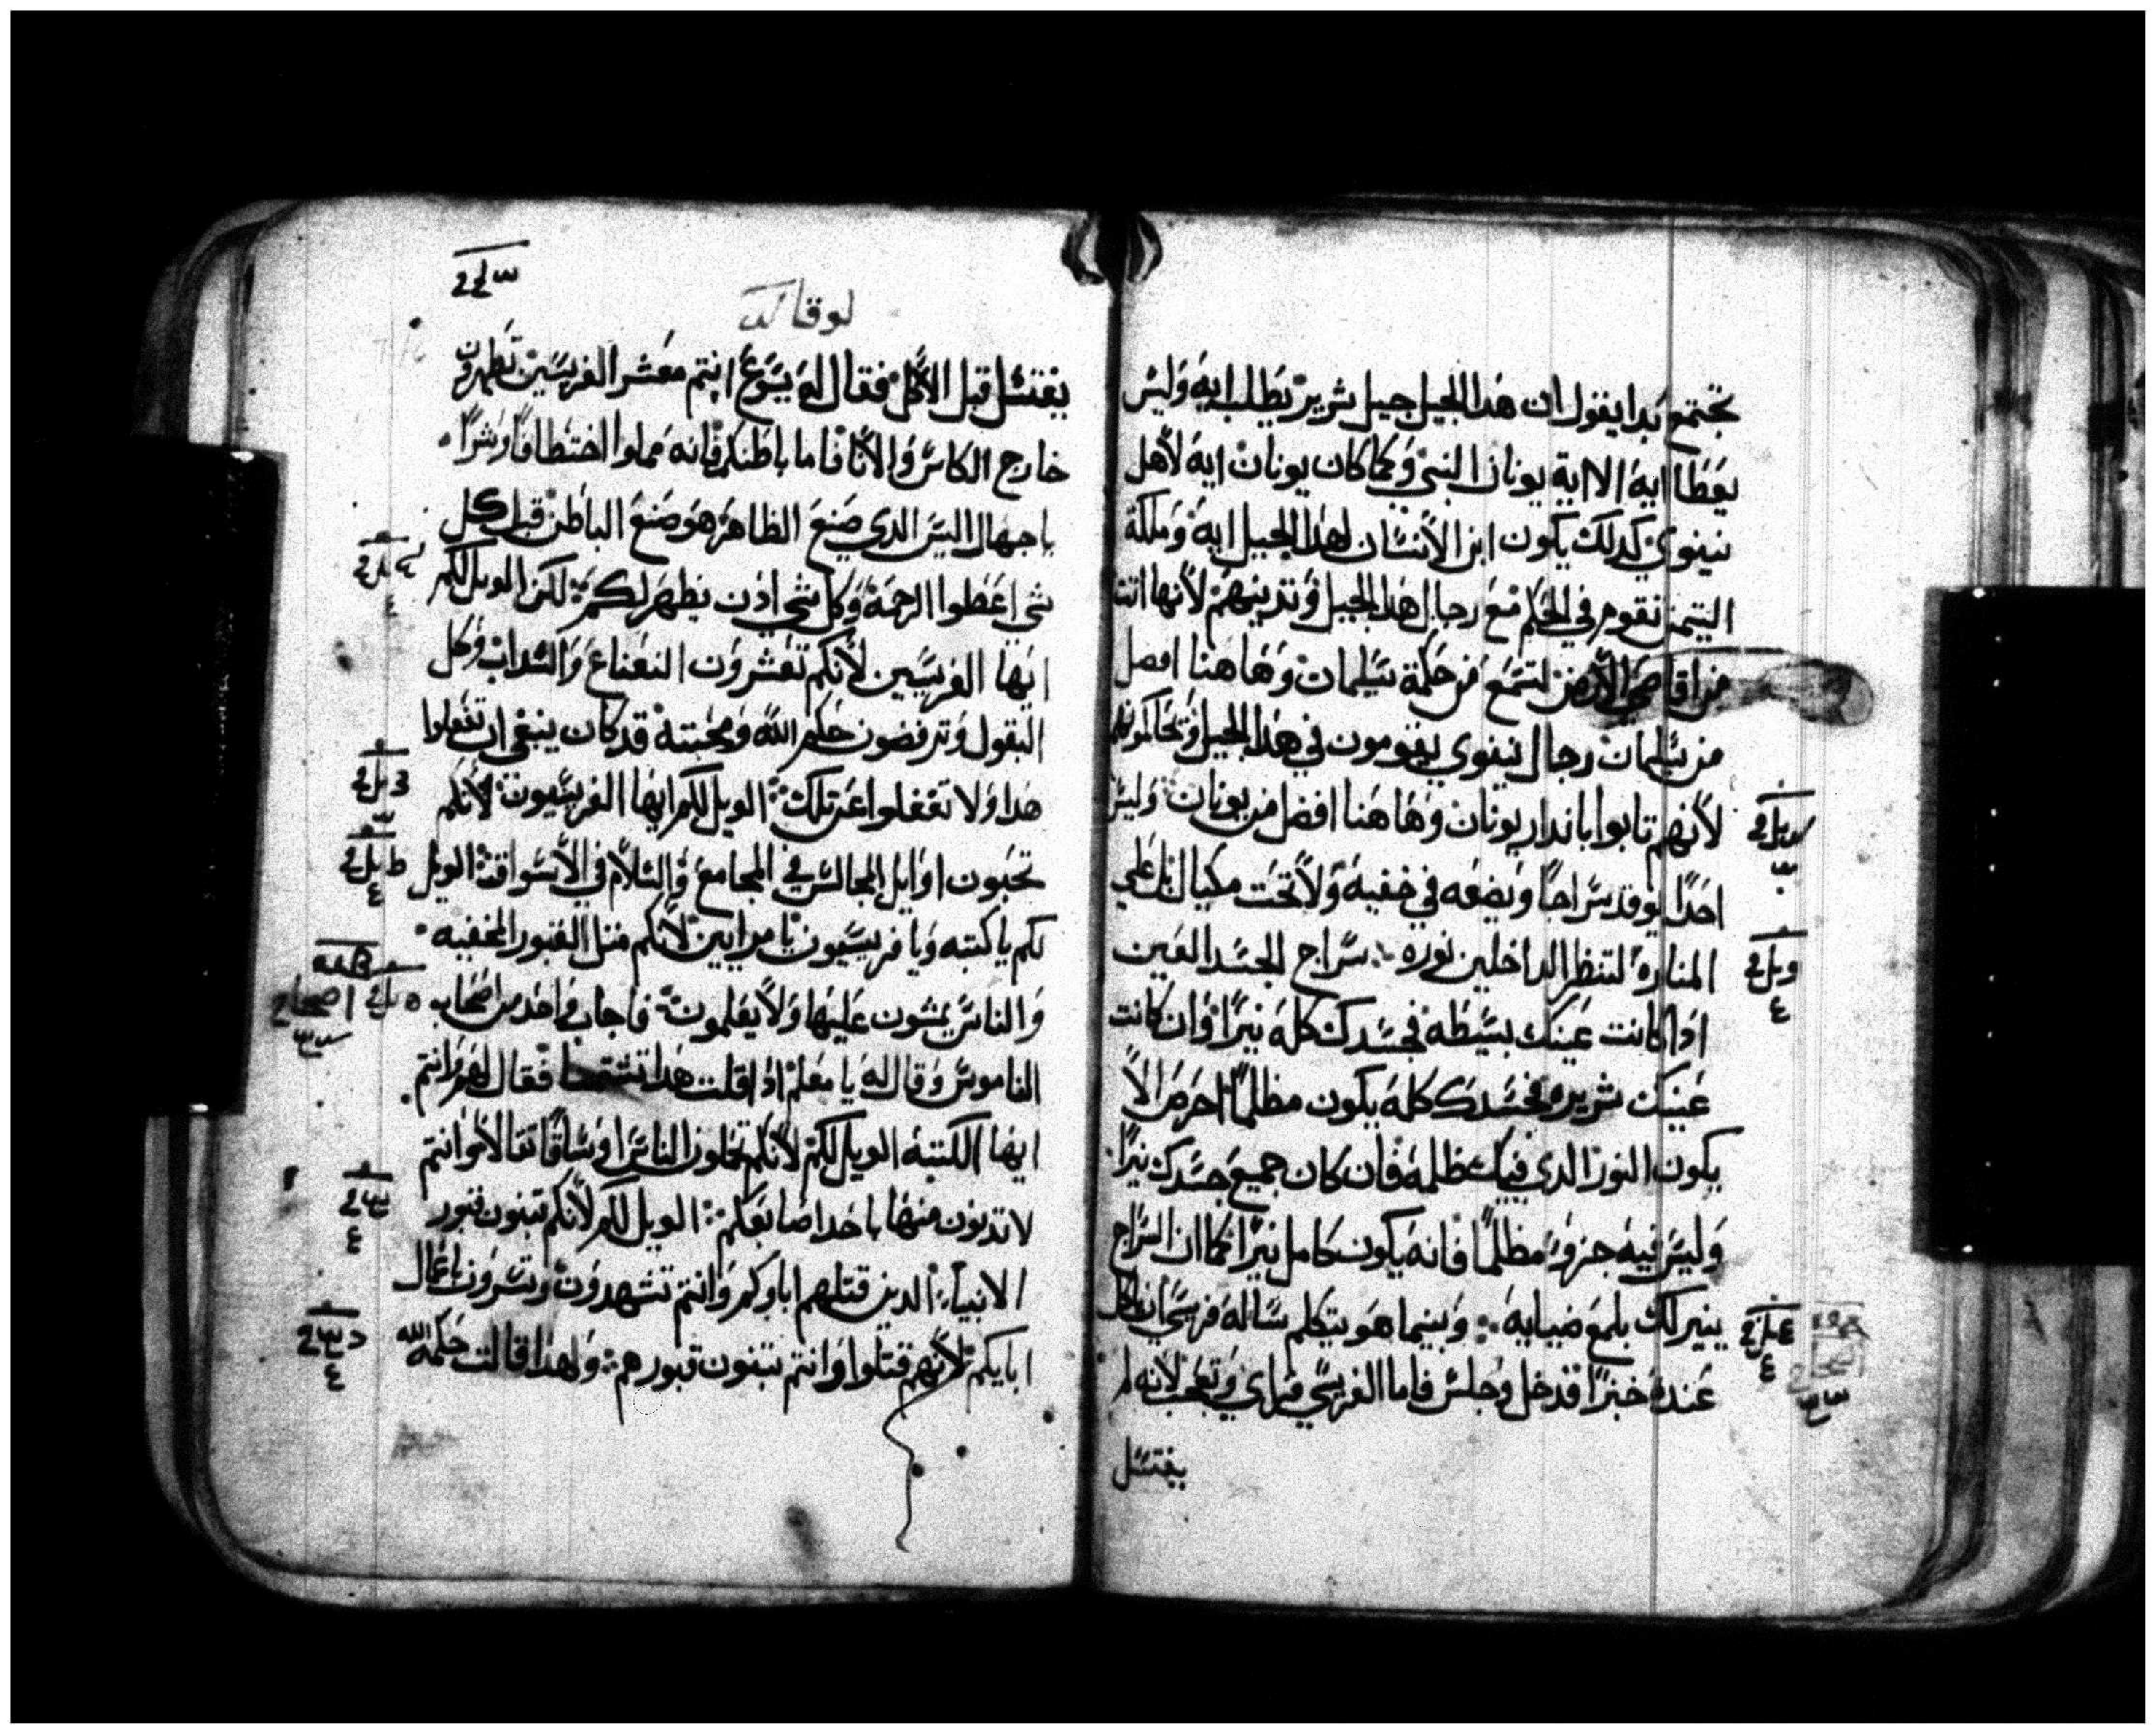 تجتمع بدا يقول ان هدا الجيل جيل شرير يطلب ايه وليس
يعطا ايه الا اية يونان النبي وكما كان يونان ايه لاهل
نينوي كدلك يكون ابن الانسان لهدا الجيل ايه وملكة
التيمن تقوم في الحكم مع رجال هدا الجيل وتدينهم لانها اتت
من اقاصي الارض لتسمع من حكمة سليمان وهاهنا افضل
من سليمان رجال نينوي يقومون في هدا الجيل
لانهم تابوا باندار يونان وهاهنا افضل من يونان وليس
احدا يوقد سراجا ويضعه في خفيه ولا تحت مكيال لكن علي
المناره لتنظر الداخلين نوره سراج الجسد العين
ادا كانت عينك بسيطه فجسدك كله نيرا وان كانت
عينك شريره فجسدك كله يكون مظلما احرص الا
يكون النور الدي فيك ظلمه فان كان جميع جسدك نيرا
وليس فيه جزو مظلما فانه يكون كامل نيرا كما ان السراج
ينير لك بلمع ضيايه وبينما هو يتكلم ساله فريسي ان ياكل
عنده خبزا فدخل وجلس فاما الفريسي فراي وتعجب لانه لم
يغتسل
لوقا
يغتسل قبل الاكل فقال له يسوع انتم معشر الفريسين تطهرون
خارج الكاس والانا فاما باطنكم فانه مملوا اختطافا وشرا
يا جهال اليس الدي صنع الظاهر هو صنع الباطن قبل كل
شي اعطوا الرحمة وكل شي ادن يطهر لكم لكن الويل لكم
ايها الفريسيين لانكم تعشرون النعناع والسداب وكل
البقول وترفضون حكم الله ومحبته قد كان ينبغي ان تفعلوا
هدا ولا تغفلوا عن تلك الويل لكم ايها الفريسيون لانكم
تحبون اوايل المجالس في المجامع والسلام في الاسواق الويل
لكم يا كتبه ويا فريسيون يا مرايين لانكم مثل القبور المخفيه
والناس يمشون عليها ولا يعلمون فاجاب واحد من اصحاب
الناموس وقال له يا معلم ادا قلت هدا تشتمنا فقال لهم وانتم
ايها الكتبه الويل لكم لانكم تحملون الناس اوساقا ثقالا وانتم
لا تدنون منها باحدا صابعكم الويل لكم لانكم تبنون قبور
الانبياء الدين قتلهم اباوكم وانتم تشهدون وتسرون باعمال
ابايكم لانهم قتلوا وانتم تبنون قبورهم ولهدا قالت حكمة الله